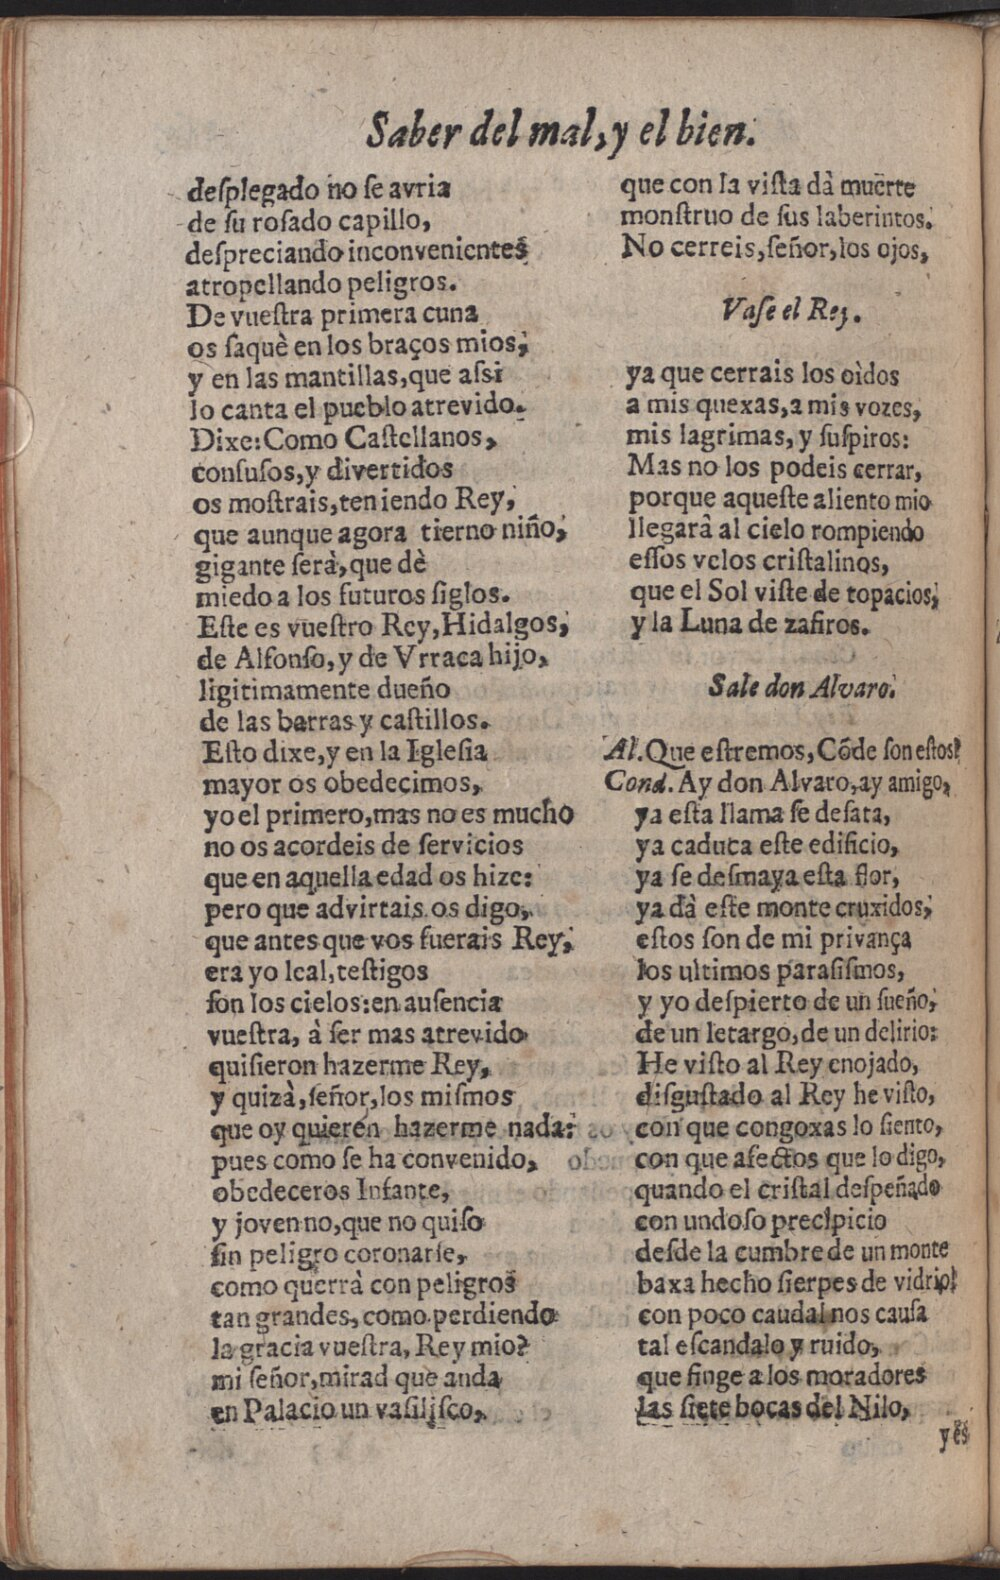 Saber del mal, y el bien.
desplegado no se avria
de su rosado capillo,
despreciando inconvenientes
atropellando peligros.
De vuestra primera cuna
os saquè en los braços mios,
y en las mantillas, que assi
lo canta el pueblo atrevido.
Dixe: Como Castellanos,
confusos, y divertidos
os mostrais, teniendo Rey,
que aunque agora tierno niño,
gigante serà, que dè
miedo a los futuros siglos.
Este es vuestro Rey, Hidalgos,
de Alfonso, y de Vrraca hijo,
ligitimamente dueño
de las barras y castillos.
Esto dixe, y en la Iglesia
mayor os obedecimos,
yo el primero, mas no es mucho
no os acordeis de servicios
que en aquella edad os hize:
pero que advirtais os digo,
que antes que vos fuerais Rey,
era yo leal, testigos
son los cielos: en ausencia
vuestra, à ser mas atrevido
quisieron hazerme Rey,
y quizà, señor, los mismos
que oy quieren hazerme nada:
pues como se ha convenido,
obedeceros Infante,
y joven no, que no quiso
sin peligro coronarse,
como querrà con peligros
tan grandes, como perdiendo
la gracia vuestra, Rey mio?
mi señor, mirad que anda
en Palacio un vasilisco,
que con la vista dà muerte
monstruo de sus laberintos.
No cerreis, señor, los ojos,
Vase el Rey.
ya que cerrais los oìdos
a mis quexas, a mis vozes,
mis lagrimas, y suspiros:
Mas no los podeis cerrar,
porque aqueste aliento mio
llegarà al cielo rompiendo
essos velos cristalinos,
que el Sol viste de topacios,
y la Luna de zafiros.
Sale don Alvaro.
Al. Que estremos, Cõde son estos?
Cond. Ay don Alvaro, ay amigo,
ya esta llama se desata,
ya caduca este edificio,
ya se desmaya esta flor,
ya dà este monte cruxidos,
estos son de mi privança
los ultimos parasismos,
y yo despierto de un sueño,
de un letargo, de un delirio:
He visto al Rey enojado,
disgustado al Rey he visto,
con que congoxas lo siento,
con que afectos que lo digo,
quando el cristal despeñado
con undoso precipicio
desde la cumbre de un monte
baxa hecho sierpes de vidrio!
con poco caudal nos causa
tal escandalo y ruido,
que finge a los moradores
las siete bocas del Nilo,
y es